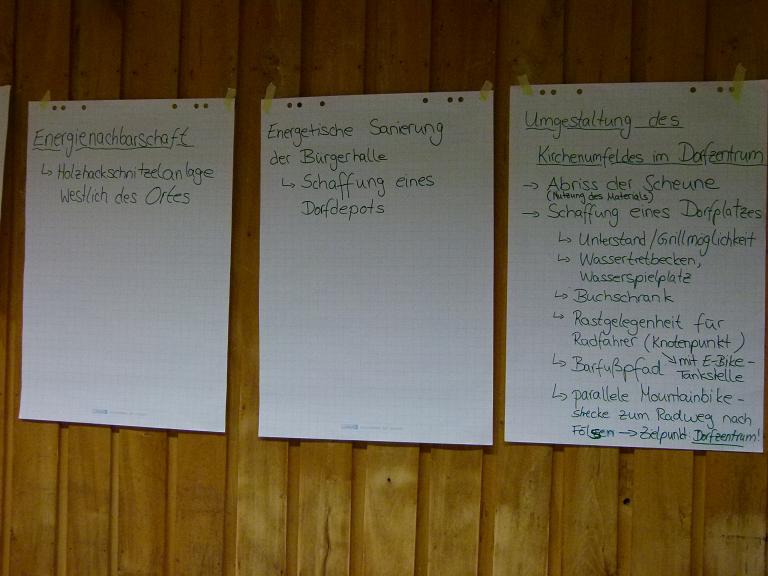 Energienachbarschaft
↳ Holzhackschnitzelanlage
westlich des Ortes
Energetische Sanierung
der Bürgerhalle
↳ Schaffung eines
Dorfdepots
Umgestaltung des
Kirchenumfeldes im Dorfzentrum
→ Abriss der Scheune
(Nutzung des Materials)
→ Schaffung eines Dorfplatzes
↳ Unterstand/Grillmöglichkeit
↳ Wassertretbecken,
Wasserspielplatz
↳ Buchschrank
↳ Rastgelegenheit für
Radfahrer (Knotenpunkt)
↘ mit E-Bike-
Tankstelle
↳ Barfußpfad
↳ parallele Mountainbike-
strecke zum Radweg nach
→ Zielpunkt: Dorfzentrum!